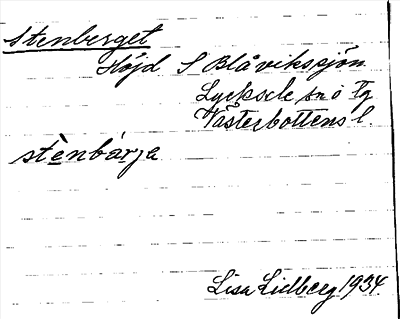 Stenberget
Höjd S Blåvikssjön
Lycksele sn o Tg
Västerbottens l.
stènbárja
Lisa Lidberg 1934.